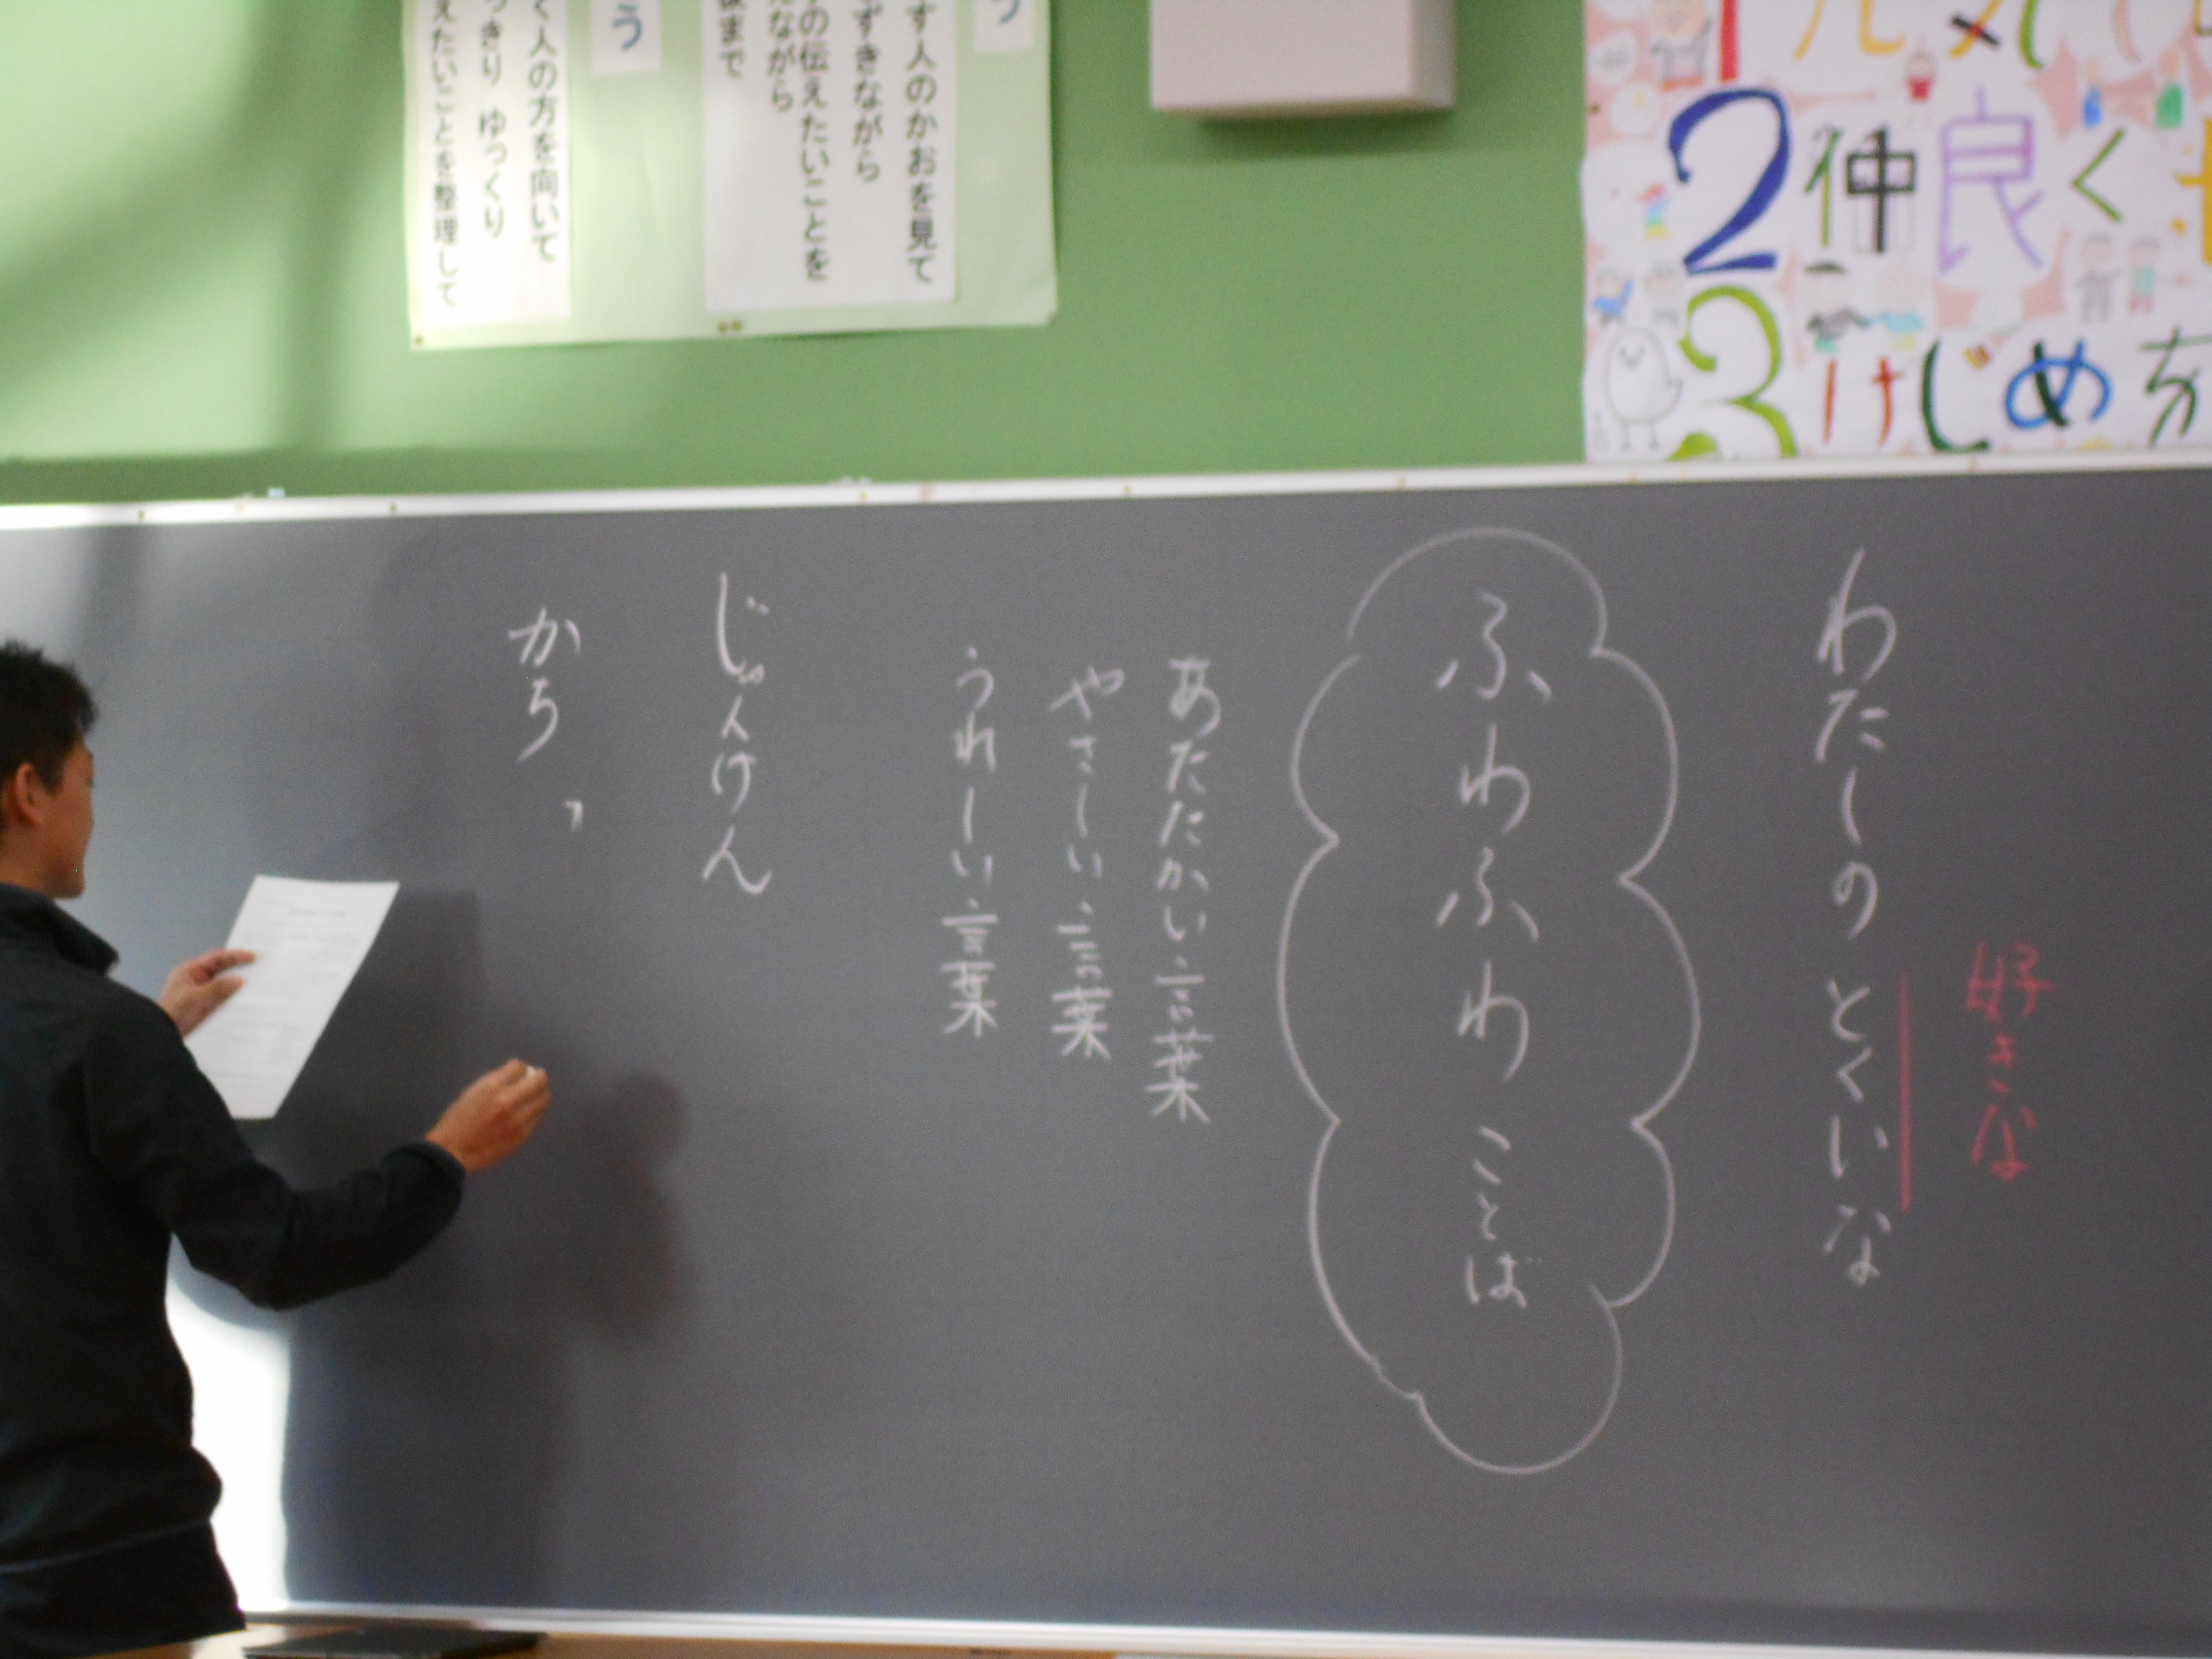 う
す人のかおを見て
ずきながら
の伝えたいことを
ながら
まで
う
く人の方を向いて
っきり ゆっくり
えたいことを整理して
1元気
2仲良く
3けじめを
好きな
わたしの とくいな
ふわふわ ことば
あたたかい言葉
やさしい言葉
うれしい言葉
じゃんけん
かち「